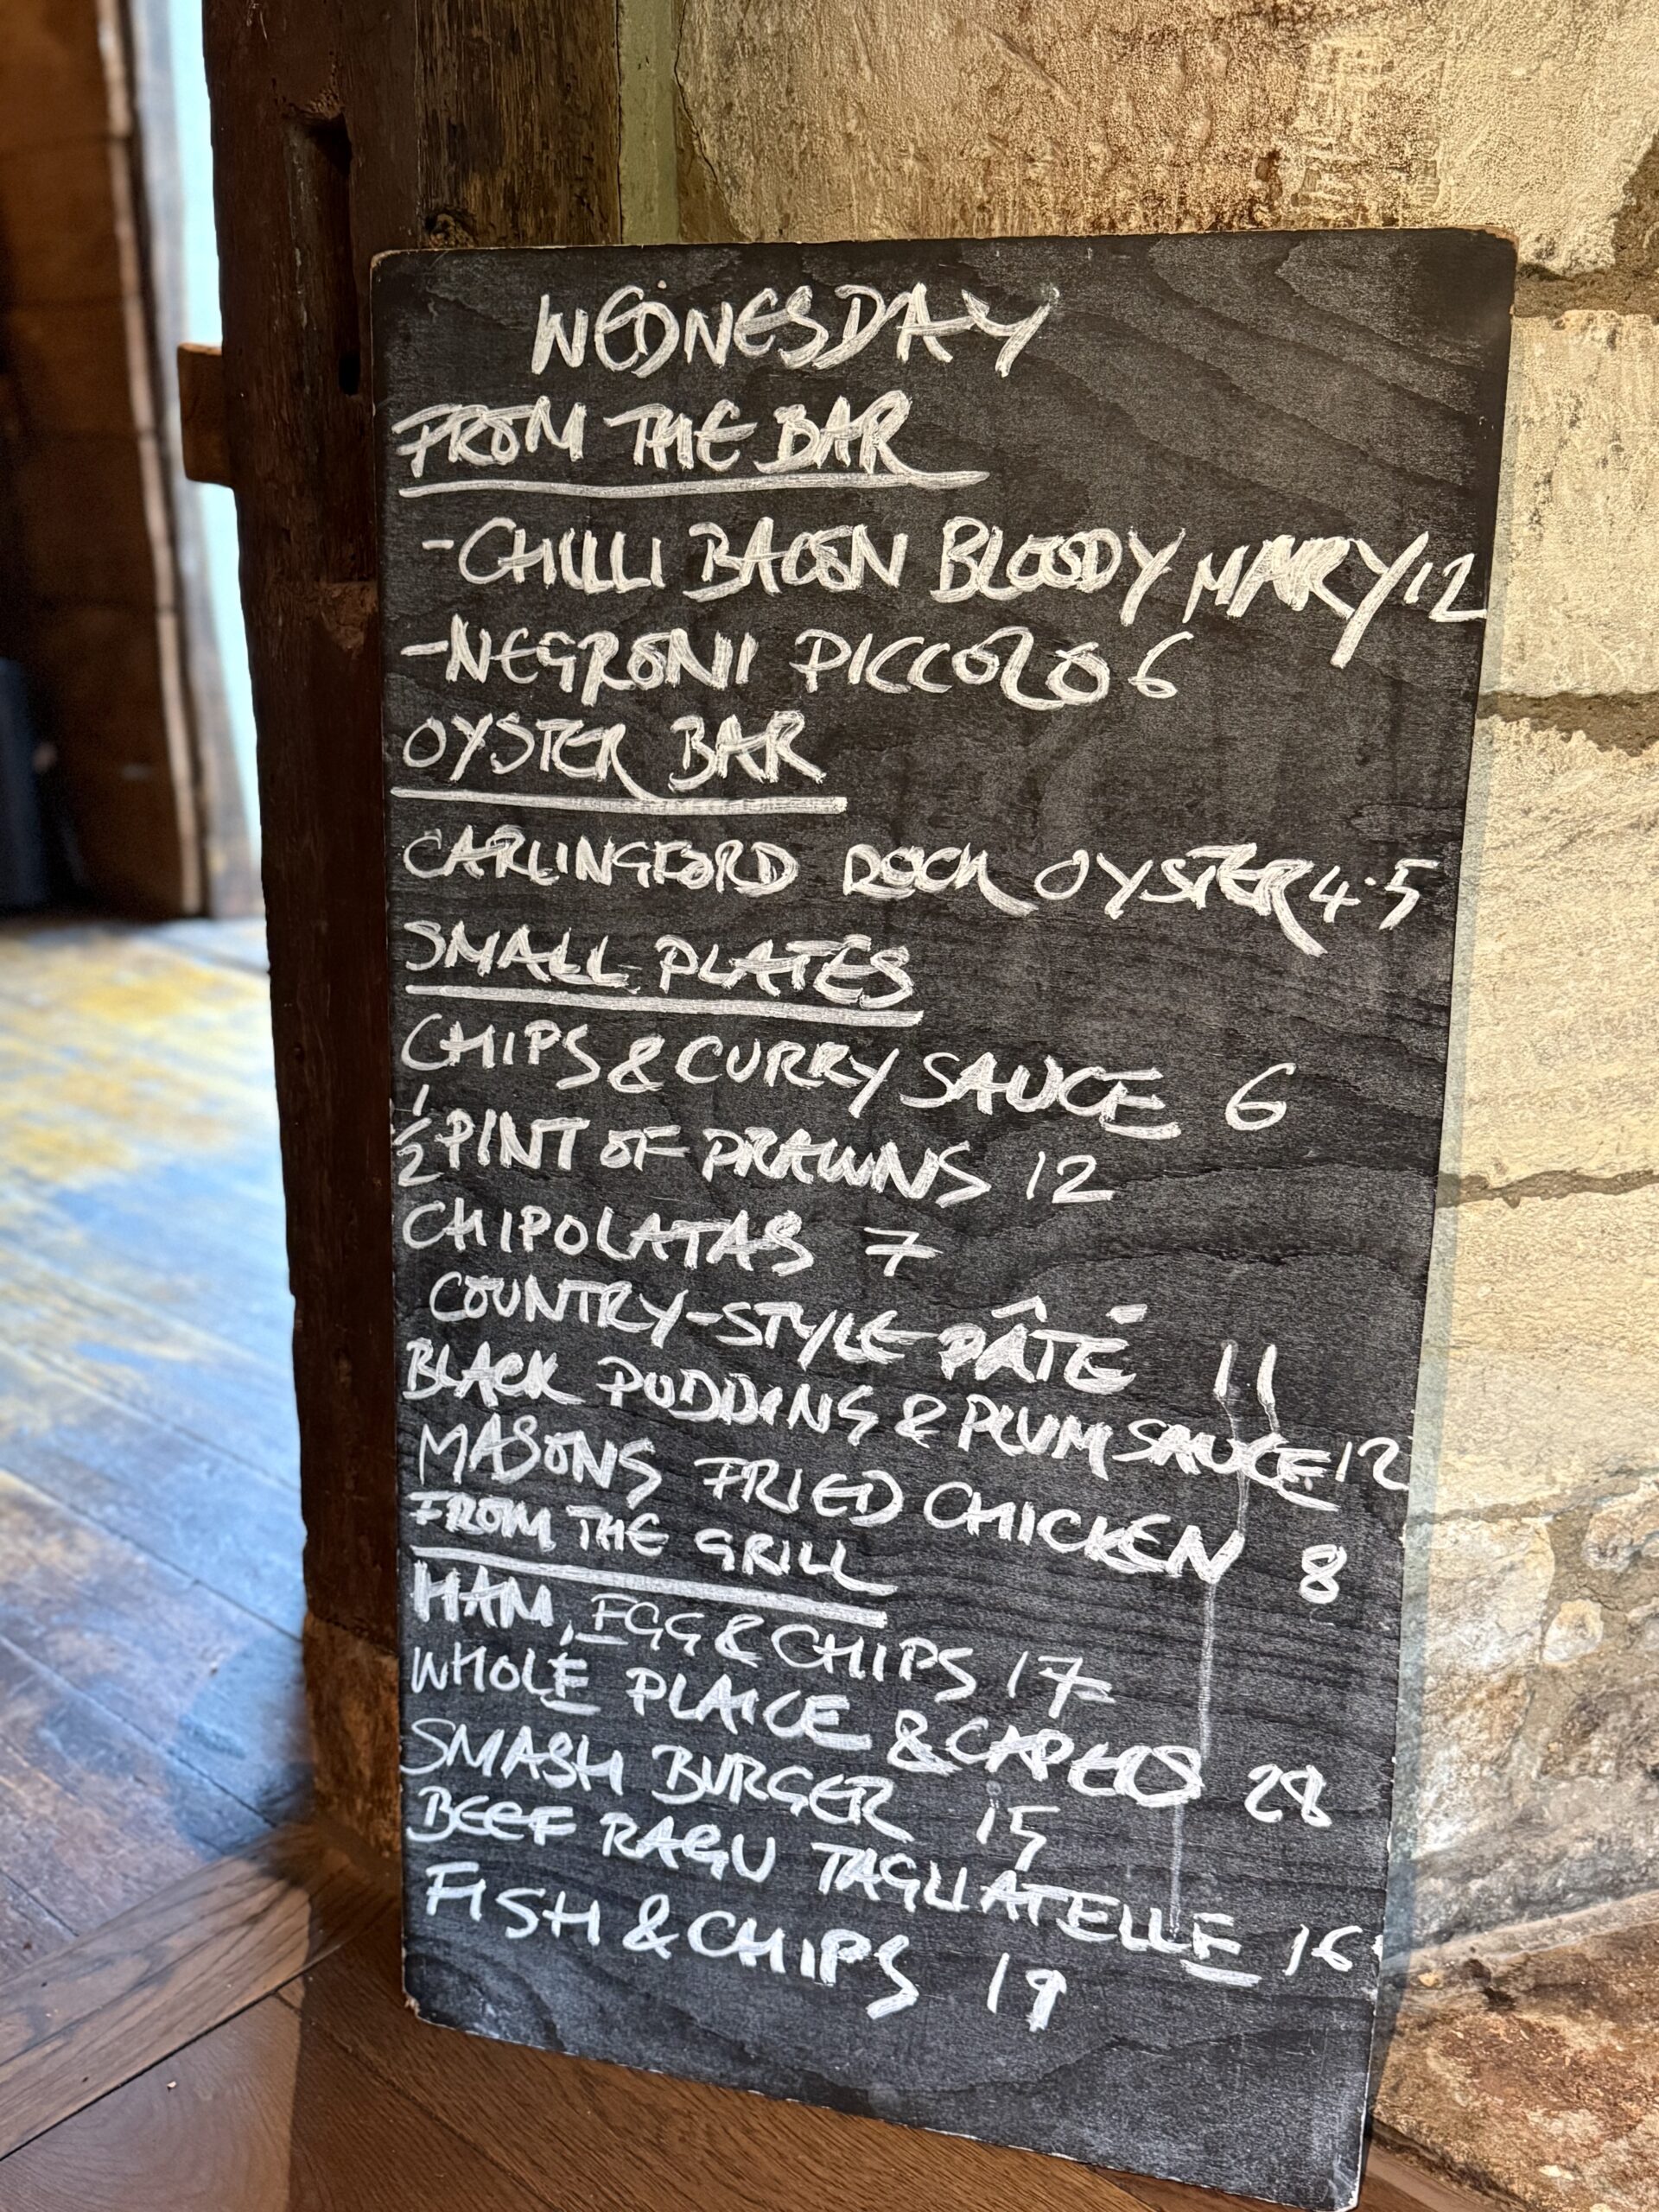 WEDNESDAY
FROM THE BAR
-CHILLI BACON BLOODY MARY 12
-NEGRONI PICCOLO 6
OYSTER BAR
CARLINGFORD ROCK OYSTER 4.5
SMALL PLATES
CHIPS & CURRY SAUCE 6
1/2 PINT OF PRAWNS 12
CHIPOLATAS 7
COUNTRY-STYLE PÂTÉ 11
BLACK PUDDING & PLUM SAUCE 12
MASONS FRIED CHICKEN 8
FROM THE GRILL
HAM, EGG & CHIPS 17
WHOLE PLAICE & CAPERS 28
SMASH BURGER 15
BEEF RAGU TAGLIATELLE 16
FISH & CHIPS 19